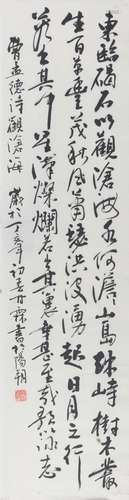 東臨碣石以觀滄海水何澹澹山島竦峙樹木叢
生百草豐茂秋風蕭瑟洪波湧起日月之行
若出其中星漢燦爛若出其裏幸甚至哉歌以詠志
曹孟德詩觀滄海 歲於丁亥年初春霖書於陽朔